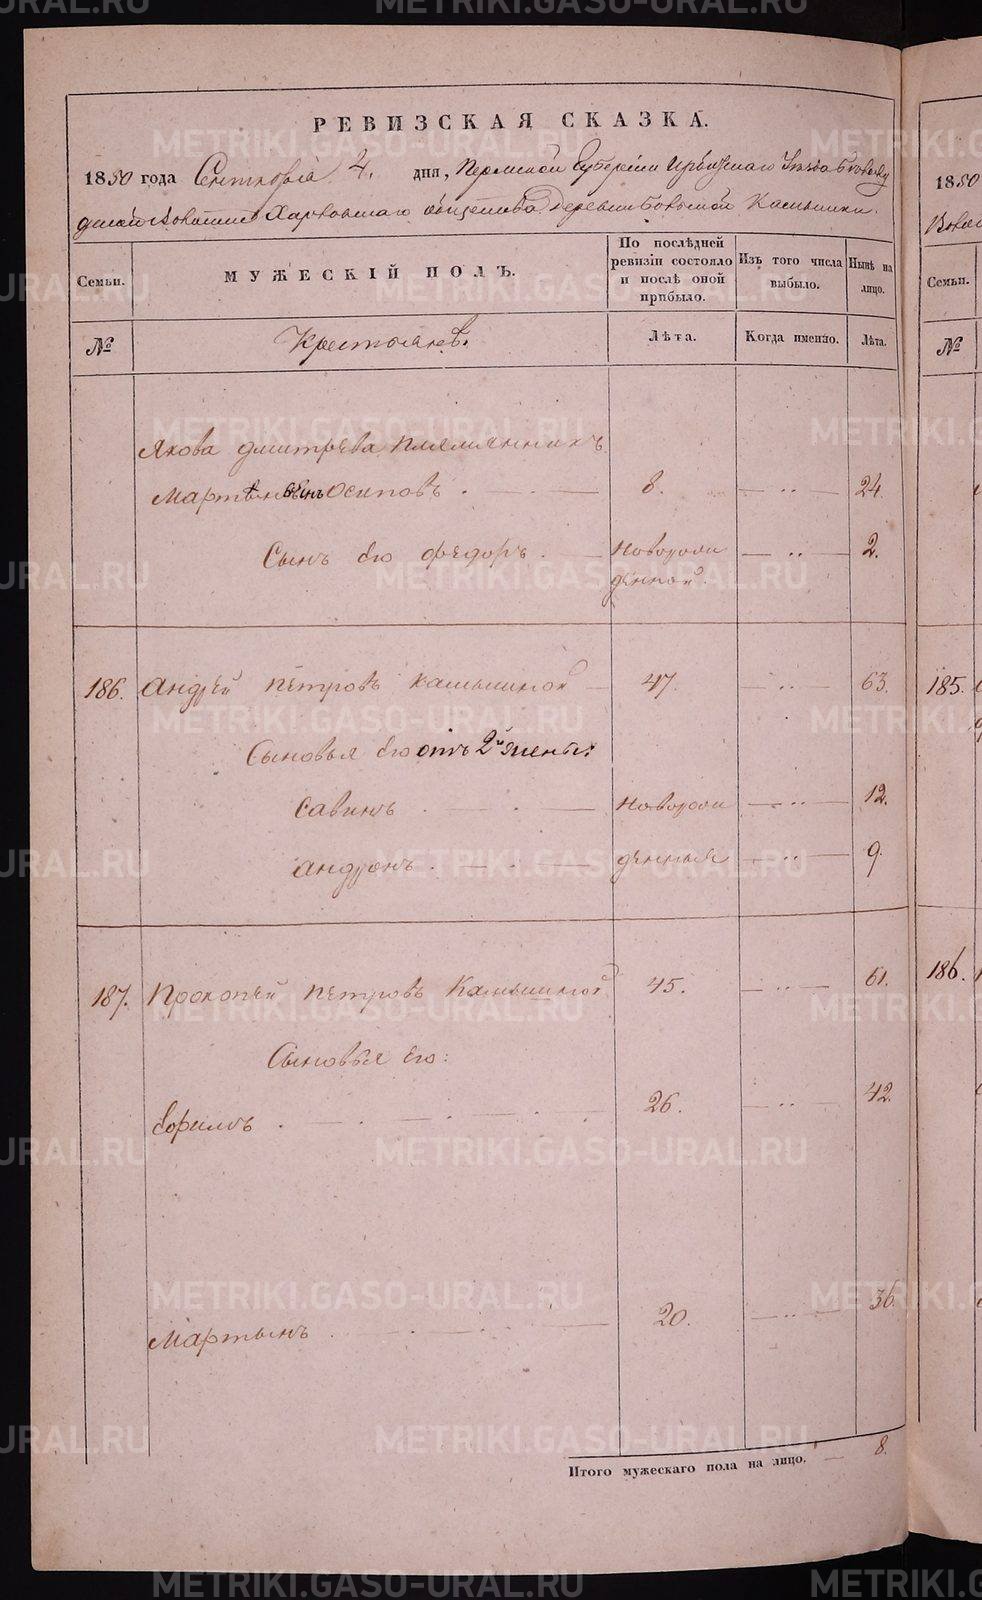 РЕВИЗСКАЯ СКАЗКА.
1850 года Сентября 4. дня, Пермской Губернии Ирбитскаго Уезда
Харловскаго общества Деревни Большой Камышки.
Семьи.
МУЖЕСКІЙ ПОЛЪ.
По послѣдней ревизіи состояло и послѣ оной прибыло.
Изъ того числа выбыло.
Нынѣ на лицо.
№
Крестьянъ.
Лѣта.
Когда именно.
Лѣта.
Якова Дмитрева племянникъ
Мартынъ Осиповъ 8. 24.
Сынъ его Федоръ новорож 2.
денной.
186. Андрей Петровъ Камышной 47. 63.
Сыновья его отъ 2й жены:
Савинъ новорож 12.
Андронъ денныя 9.
187. Прокопей Петровъ Камышной 45. 61.
Сыновья его:
Ефимъ 26. 42.
Мартынъ 20. 36.
Итого мужескаго пола на лицо. 8.
1850
Семьи.
№
185.
186.
METRIKI.GASO-URAL.RU